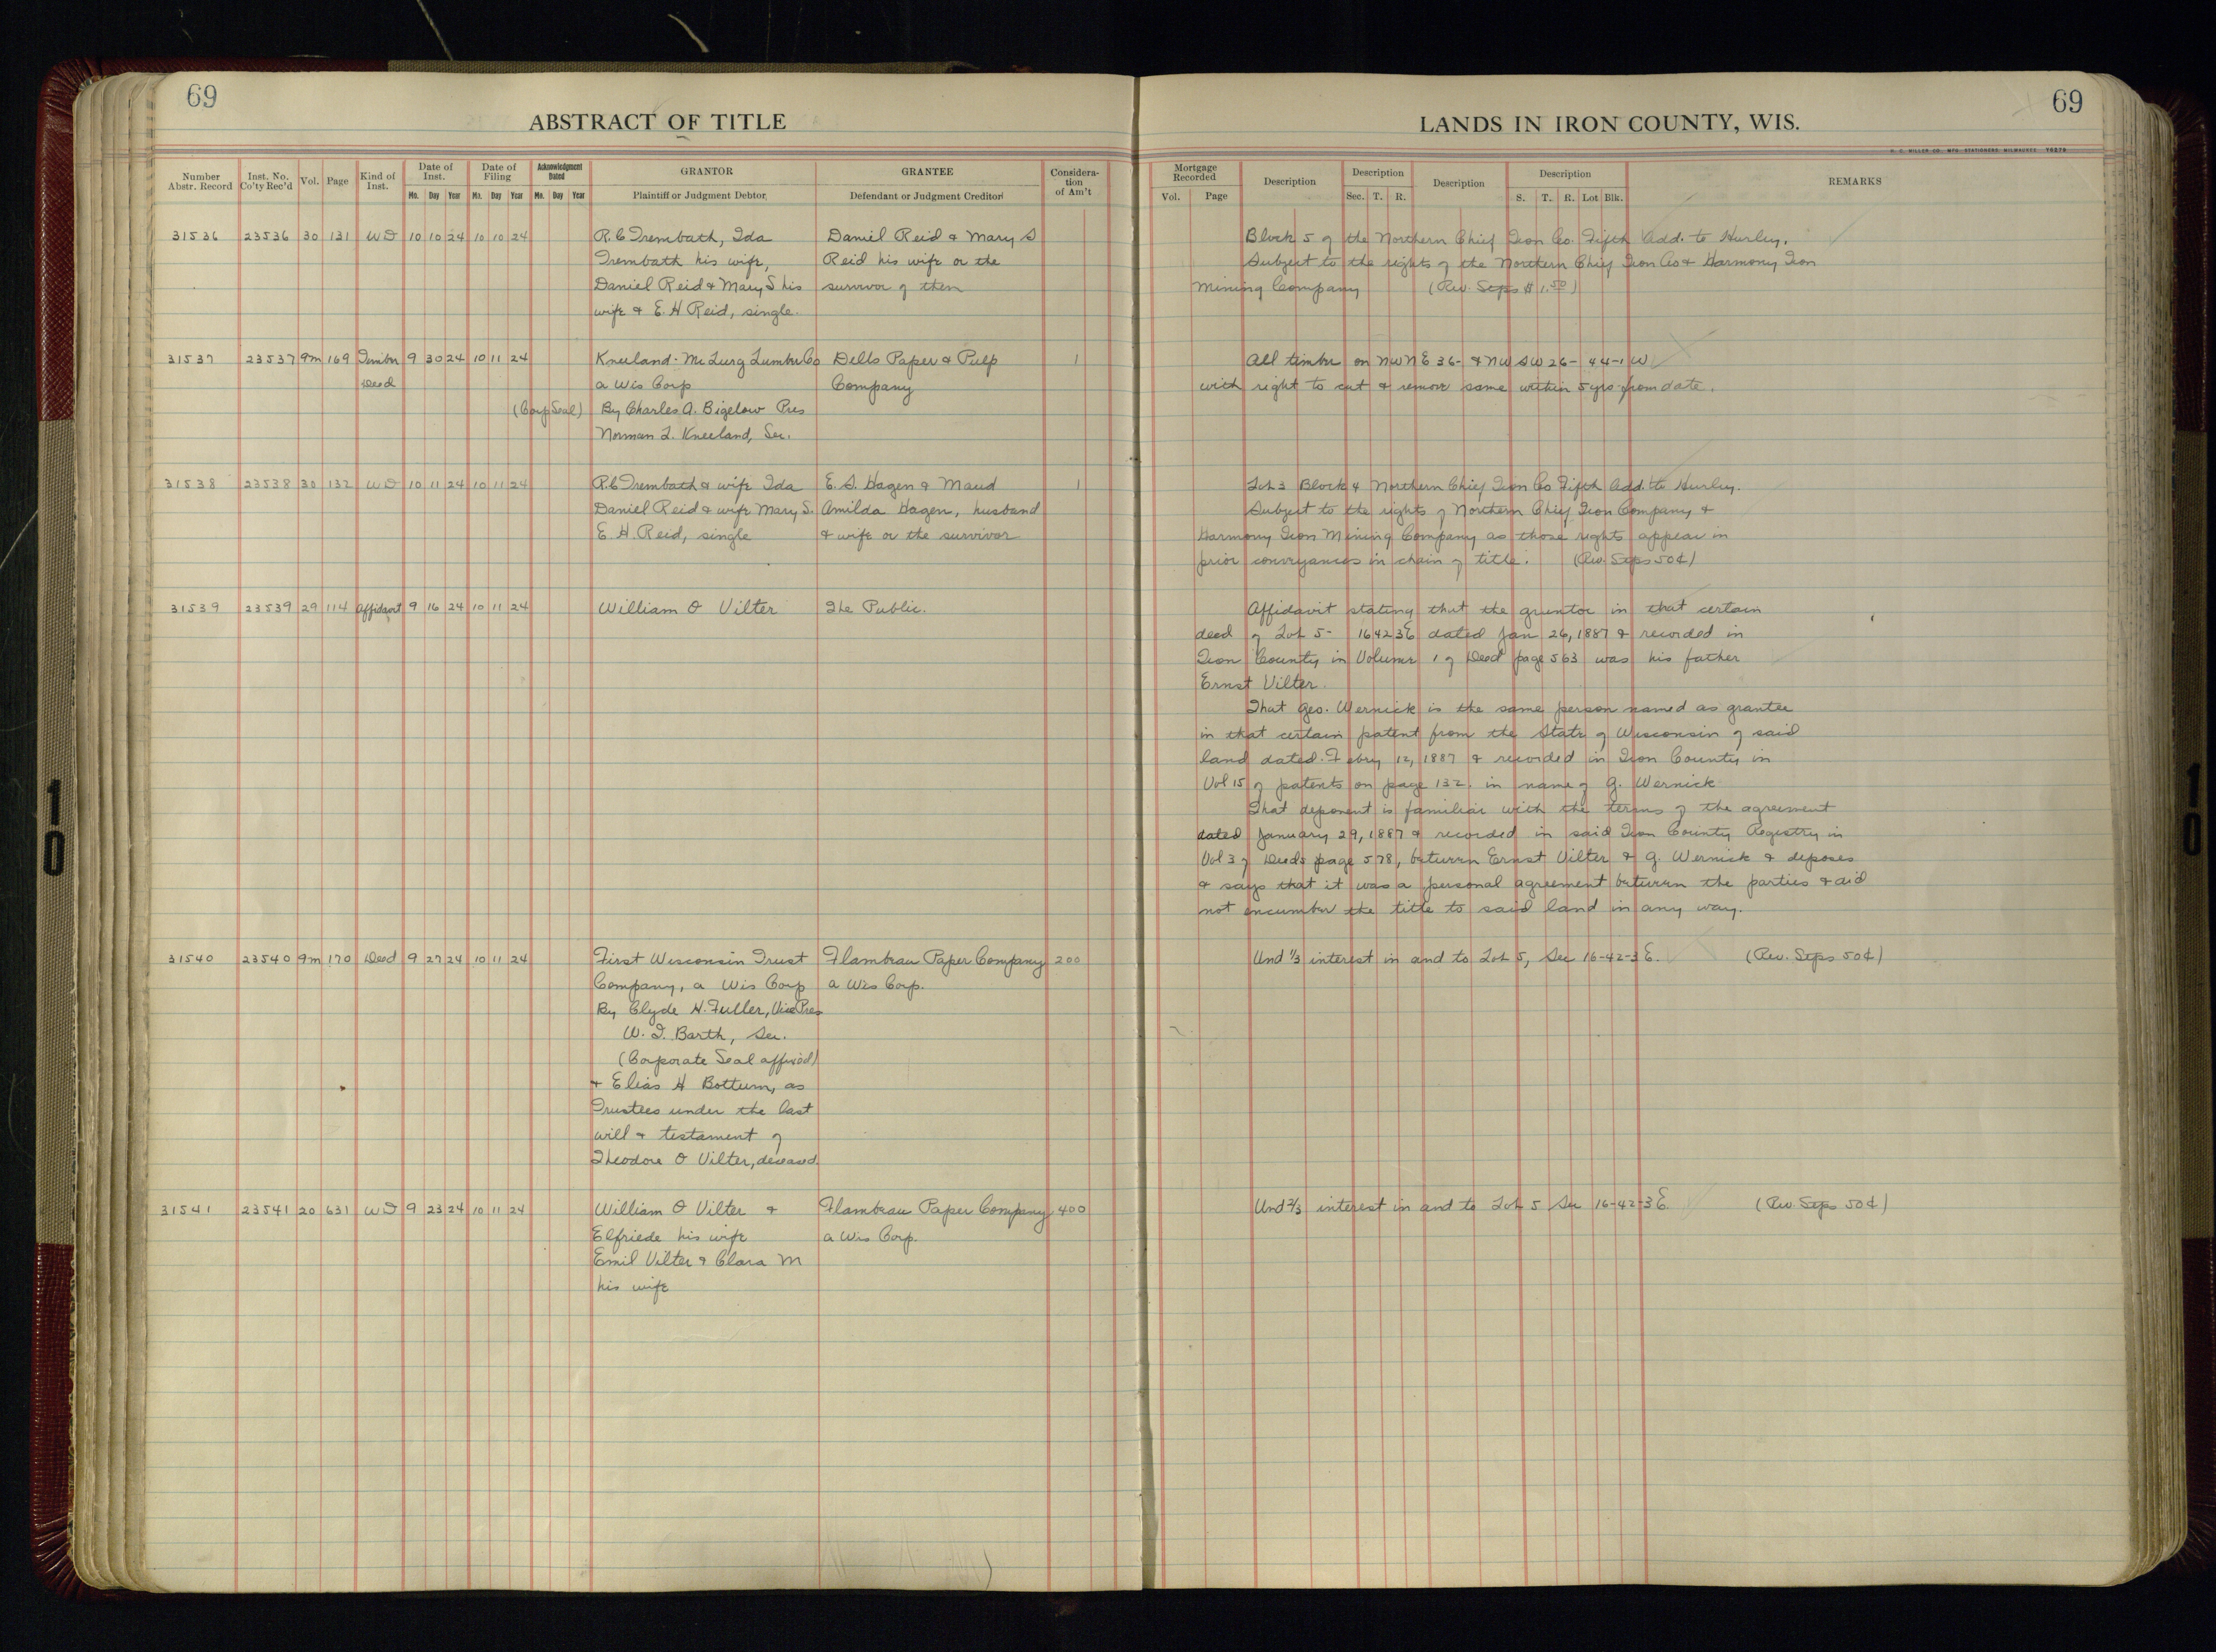 69
ABSTRACT OF TITLE
Number Abstr. Record | Inst. No. Co'ty Rec'd | Vol. | Page | Kind of Inst. | Date of Inst. Mo. Day Year | Date of Filing Mo. Day Year | Acknowledgment Dated Mo. Day Year | GRANTOR Plaintiff or Judgment Debtor | GRANTEE Defendant or Judgment Creditor | Consideration of Am't
31536 23536 30 131 WD 10 10 24 10 10 24 R.C Trembath, Ida Daniel Reid & Mary S
Trembath his wife, Reid his wife or the
Daniel Reid & Mary S his survivor of them
wife & E. H Reid, single.
31537 23537 9m 169 Timber 9 30 24 10 11 24 Kneeland-McLurg Lumber Co Dells Paper & Pulp 1
Deed a Wis Corp Company
(Corp Seal) By Charles A. Bigelow Pres
Norman L. Kneeland, Sec.
31538 23538 30 132 WD 10 11 24 10 11 24 R.C Trembath & wife Ida E. S. Hagen & Maud 1
Daniel Reid & wife Mary S. Amilda Hagen, husband
E. H. Reid, single & wife or the survivor
31539 23539 29 114 Affidavit 9 16 24 10 11 24 William O Vilter The Public.
31540 23540 9m 170 Deed 9 27 24 10 11 24 First Wisconsin Trust Flambeau Paper Company 200
Company, a Wis Corp a Wis Corp.
By Clyde H. Fuller, Vice Pres
W. I. Barth, Sec.
(Corporate Seal affixed)
& Elias H Bottum, as
Trustees under the last
will & testament of
Theodore O Vilter, deceased.
31541 23541 20 631 WD 9 23 24 10 11 24 William O Vilter & Flambeau Paper Company 400
Elfriede his wife a Wis Corp.
Emil Vilter & Clara M
his wife
69
LANDS IN IRON COUNTY, WIS.
H. C. MILLER CO. MFG. STATIONERS MILWAUKEE
Mortgage Recorded Vol. Page | Description | Description Sec. T. R. | Description | Description S. T. R. Lot Blk. | REMARKS
Block 5 of the Northern Chief Iron Co. Fifth Add. to Hurley.
Subject to the rights of the Northern Chief Iron Co & Harmony Iron
Mining Company (Rev. Stps $1.50)
All timber on NWNE 36- & NWSW 26- 44-1W
with right to cut & remove same within 5 yrs from date.
Lot 3 Block 4 Northern Chief Iron Co Fifth Add. to Hurley.
Subject to the rights of Northern Chief Iron Company &
Harmony Iron Mining Company as those rights appear in
prior conveyances in chain of title. (Rev. Stps 50¢)
Affidavit stating that the grantor in that certain
deed of Lot 5- 16 42 3E dated Jan 26, 1887 & recorded in
Iron County in Volume 1 of Deed page 563 was his father
Ernst Vilter.
That Geo. Wernick is the same person named as grantee
in that certain patent from the State of Wisconsin of said
land dated Febry 12, 1887 & recorded in Iron County in
Vol 15 of patents on page 132. in name of G. Wernick
That deponent is familiar with the terms of the agreement
dated January 29, 1887 & recorded in said Iron County Registry in
Vol 3 of Deeds page 578, between Ernst Vilter & G. Wernick & deposes
& says that it was a personal agreement between the parties & did
not encumber the title to said land in any way.
Und 1/3 interest in and to Lot 5, Sec 16-42-3E. (Rev. Stps 50¢)
Und 2/3 interest in and to Lot 5 Sec 16-42-3E. (Rev. Stps 50¢)
10
10